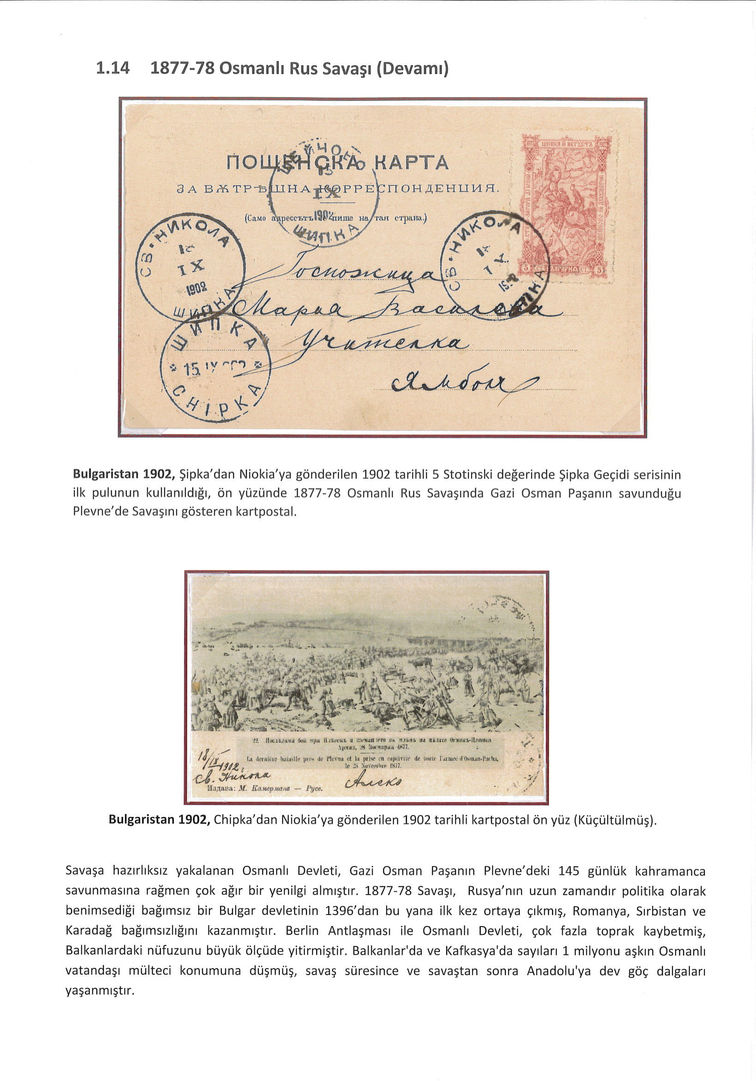 1.14 1877-78 Osmanlı Rus Savaşı (Devamı)
ПОЩЕНСКА КАРТА
ЗА ВѪТРѢШНА КОРРЕСПОНДЕНЦИЯ.
(Само адрессътъ се пише на тая страна.)
ШЕЙНОВО
15
IX
1902
ШИПКА
СВ·НИКОЛА
IX
1902
ШИПКА
СВ·НИКОЛА
ШИПКА
ШИПКА
15 IX
CHIPKA
Госпожица
Мария Василева
Учителка
Ямболъ
Bulgaristan 1902, Şipka’dan Niokia’ya gönderilen 1902 tarihli 5 Stotinski değerinde Şipka Geçidi serisinin
ilk pulunun kullanıldığı, ön yüzünde 1877-78 Osmanlı Rus Savaşında Gazi Osman Paşanın savunduğu
Plevne’de Savaşını gösteren kartpostal.
22. Последния бой при Плѣвенъ и
Армия, 28 Ноемврия 1877.
La dernière bataille près de Plevna et la prise en captivité de toute l'armée d'Osman-Pacha,
le 28 Novembre 1877.
18/IX 1902,
Св. Никола
Издава: М. Камермана — Русе.
Bulgaristan 1902, Chipka’dan Niokia’ya gönderilen 1902 tarihli kartpostal ön yüz (Küçültülmüş).
Savaşa hazırlıksız yakalanan Osmanlı Devleti, Gazi Osman Paşanın Plevne’deki 145 günlük kahramanca
savunmasına rağmen çok ağır bir yenilgi almıştır. 1877-78 Savaşı, Rusya’nın uzun zamandır politika olarak
benimsediği bağımsız bir Bulgar devletinin 1396’dan bu yana ilk kez ortaya çıkmış, Romanya, Sırbistan ve
Karadağ bağımsızlığını kazanmıştır. Berlin Antlaşması ile Osmanlı Devleti, çok fazla toprak kaybetmiş,
Balkanlardaki nüfuzunu büyük ölçüde yitirmiştir. Balkanlar'da ve Kafkasya'da sayıları 1 milyonu aşkın Osmanlı
vatandaşı mülteci konumuna düşmüş, savaş süresince ve savaştan sonra Anadolu'ya dev göç dalgaları
yaşanmıştır.